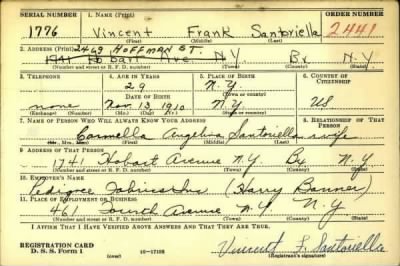 SERIAL NUMBER 1. NAME (Print) ORDER NUMBER
1776 Vincent Frank Santoriella 2441
(First) (Middle) (Last)
2. ADDRESS (Print) 2469 HOFFMAN ST.
1741 Hobart Ave. N.Y. Bx. N.Y.
(Number and street or R. F. D. number) (Town) (County) (State)
3. TELEPHONE 4. AGE IN YEARS 5. PLACE OF BIRTH 6. COUNTRY OF CITIZENSHIP
29 N.Y.
DATE OF BIRTH (Town or county)
none Nov. 13, 1910 N.Y. US
(Exchange) (Number) (Mo.) (Day) (Yr.) (State or country)
7. NAME OF PERSON WHO WILL ALWAYS KNOW YOUR ADDRESS 8. RELATIONSHIP OF THAT PERSON
Carmella Angelina Santoriella wife
(Mr., Mrs., Miss) (First) (Middle) (Last)
9. ADDRESS OF THAT PERSON
1741 Hobart Avenue N.Y. Bx. N.Y.
(Number and street or R. F. D. number) (Town) (County) (State)
10. EMPLOYER'S NAME
Pedigree Inc (Harry Banner)
11. PLACE OF EMPLOYMENT OR BUSINESS
461 Fourth Avenue N.Y. N.Y.
(Number and street or R. F. D. number) (Town) (County) (State)
I AFFIRM THAT I HAVE VERIFIED ABOVE ANSWERS AND THAT THEY ARE TRUE.
REGISTRATION CARD
D. S. S. Form 1 (over) 16—17105 Vincent F. Santoriella
(Registrant's signature)